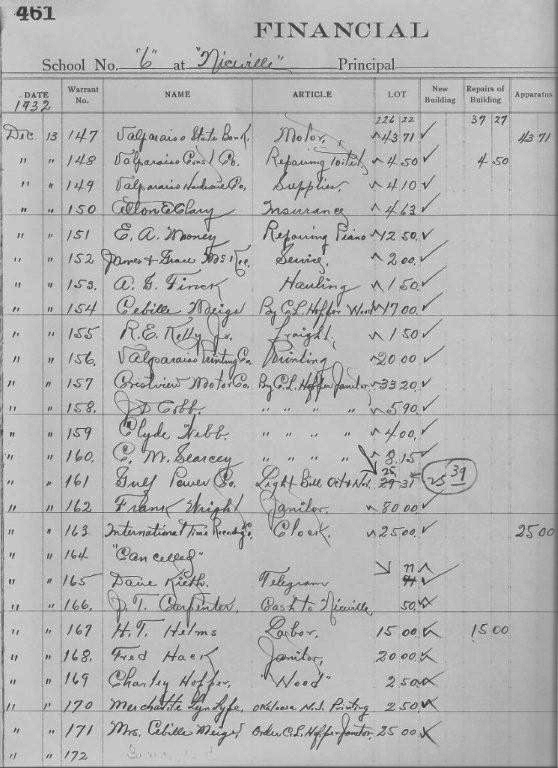 461
FINANCIAL
School No. "6" at "Niceville" Principal
DATE Warrant No. NAME ARTICLE LOT New Building Repairs of Building Apparatus
1932 226 22 37 27
Dec 13 147 Valparaiso State Bank. Motor. 43 71 43 71
" " 148 Valparaiso Const Co. Repairing toilets 4 50 4 50
" " 149 Valparaiso Hardware Co. Supplies. 4 10
" " 150 Alton E Clary Insurance 4 63
" " 151 E. A. Mooney Repairing Piano 12 50
" " 152 James & Grace Service. 2 00
" " 153. A. G. Finck Hauling 1 50
" " 154 Cebille Meigs By C. L. Hoffer Wood 17 00
" " 155 R. E. Kelly Jr. Fraight, 1 50
" " 156. Valparaiso Printing Co. Printing 20 00
" " 157 Crestview Motor Co. By C. L. Hoffer Janitor 33 20
" " 158. J D Cobb. " " " " 5 90
" " 159 Clyde Webb. " " " " 4 00
" " 160. C. M. Searcey " " " " 8.15
" " 161 Gulf Power Co. Light Bill Oct & Nov. 25 31 25 39
" " 162 Frank Wright Janitor. 80 00
" " 163 International Time Recording Co, Clock. 25 00 25 00
" " 164 "Cancelled"
" " 165 Dave Rieth. Telegram 77
" " 166. J. T. Carpenter. Cash to Niceville, 50
" " 167 H. T. Helms Labor. 15 00 15 00
" " 168. Fred Hack Janitor, 20 00
" " 169 Charley Hoffer, "Wood" 2 50
" " 170 Merchantte Lyndlyfe, Okaloosa N. J. Printing 2 50
" " 171 Mrs. Cebille Meigs Order C. L. Hoffer Janitor, 25 00
" " 172